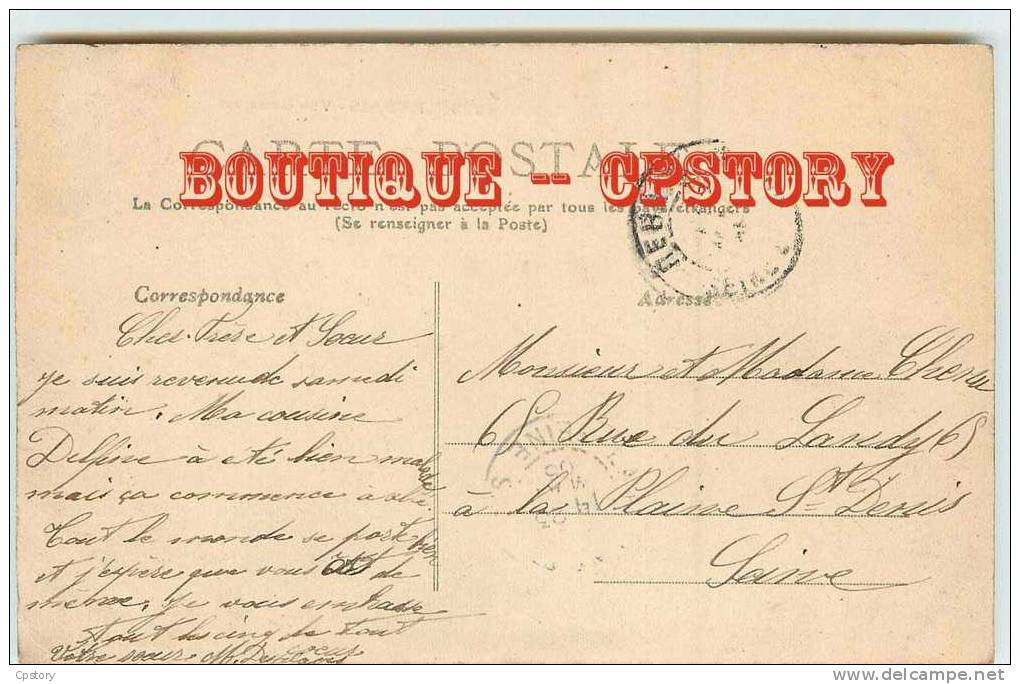 CARTE POSTALE
BOUTIQUE -- CPSTORY
La Correspondance au recto n'est pas acceptée par tous les pays étrangers
(Se renseigner à la Poste)
Correspondance
Adresse
Cher Frère et Sœur
je suis revenu de samedi
matin, Ma cousine
Delfine à été bien malade
mais ça commence à aller,
Tout le monde se porte bien
et j'espère que vous de
même, je vous embrasse
tout les cinq de tout
cœur
Votre sœur M.
Monsieur et Madame
65 Rue du Landy 65
à la Plaine St Denis
Seine
Cpstory
www.delcampe.net